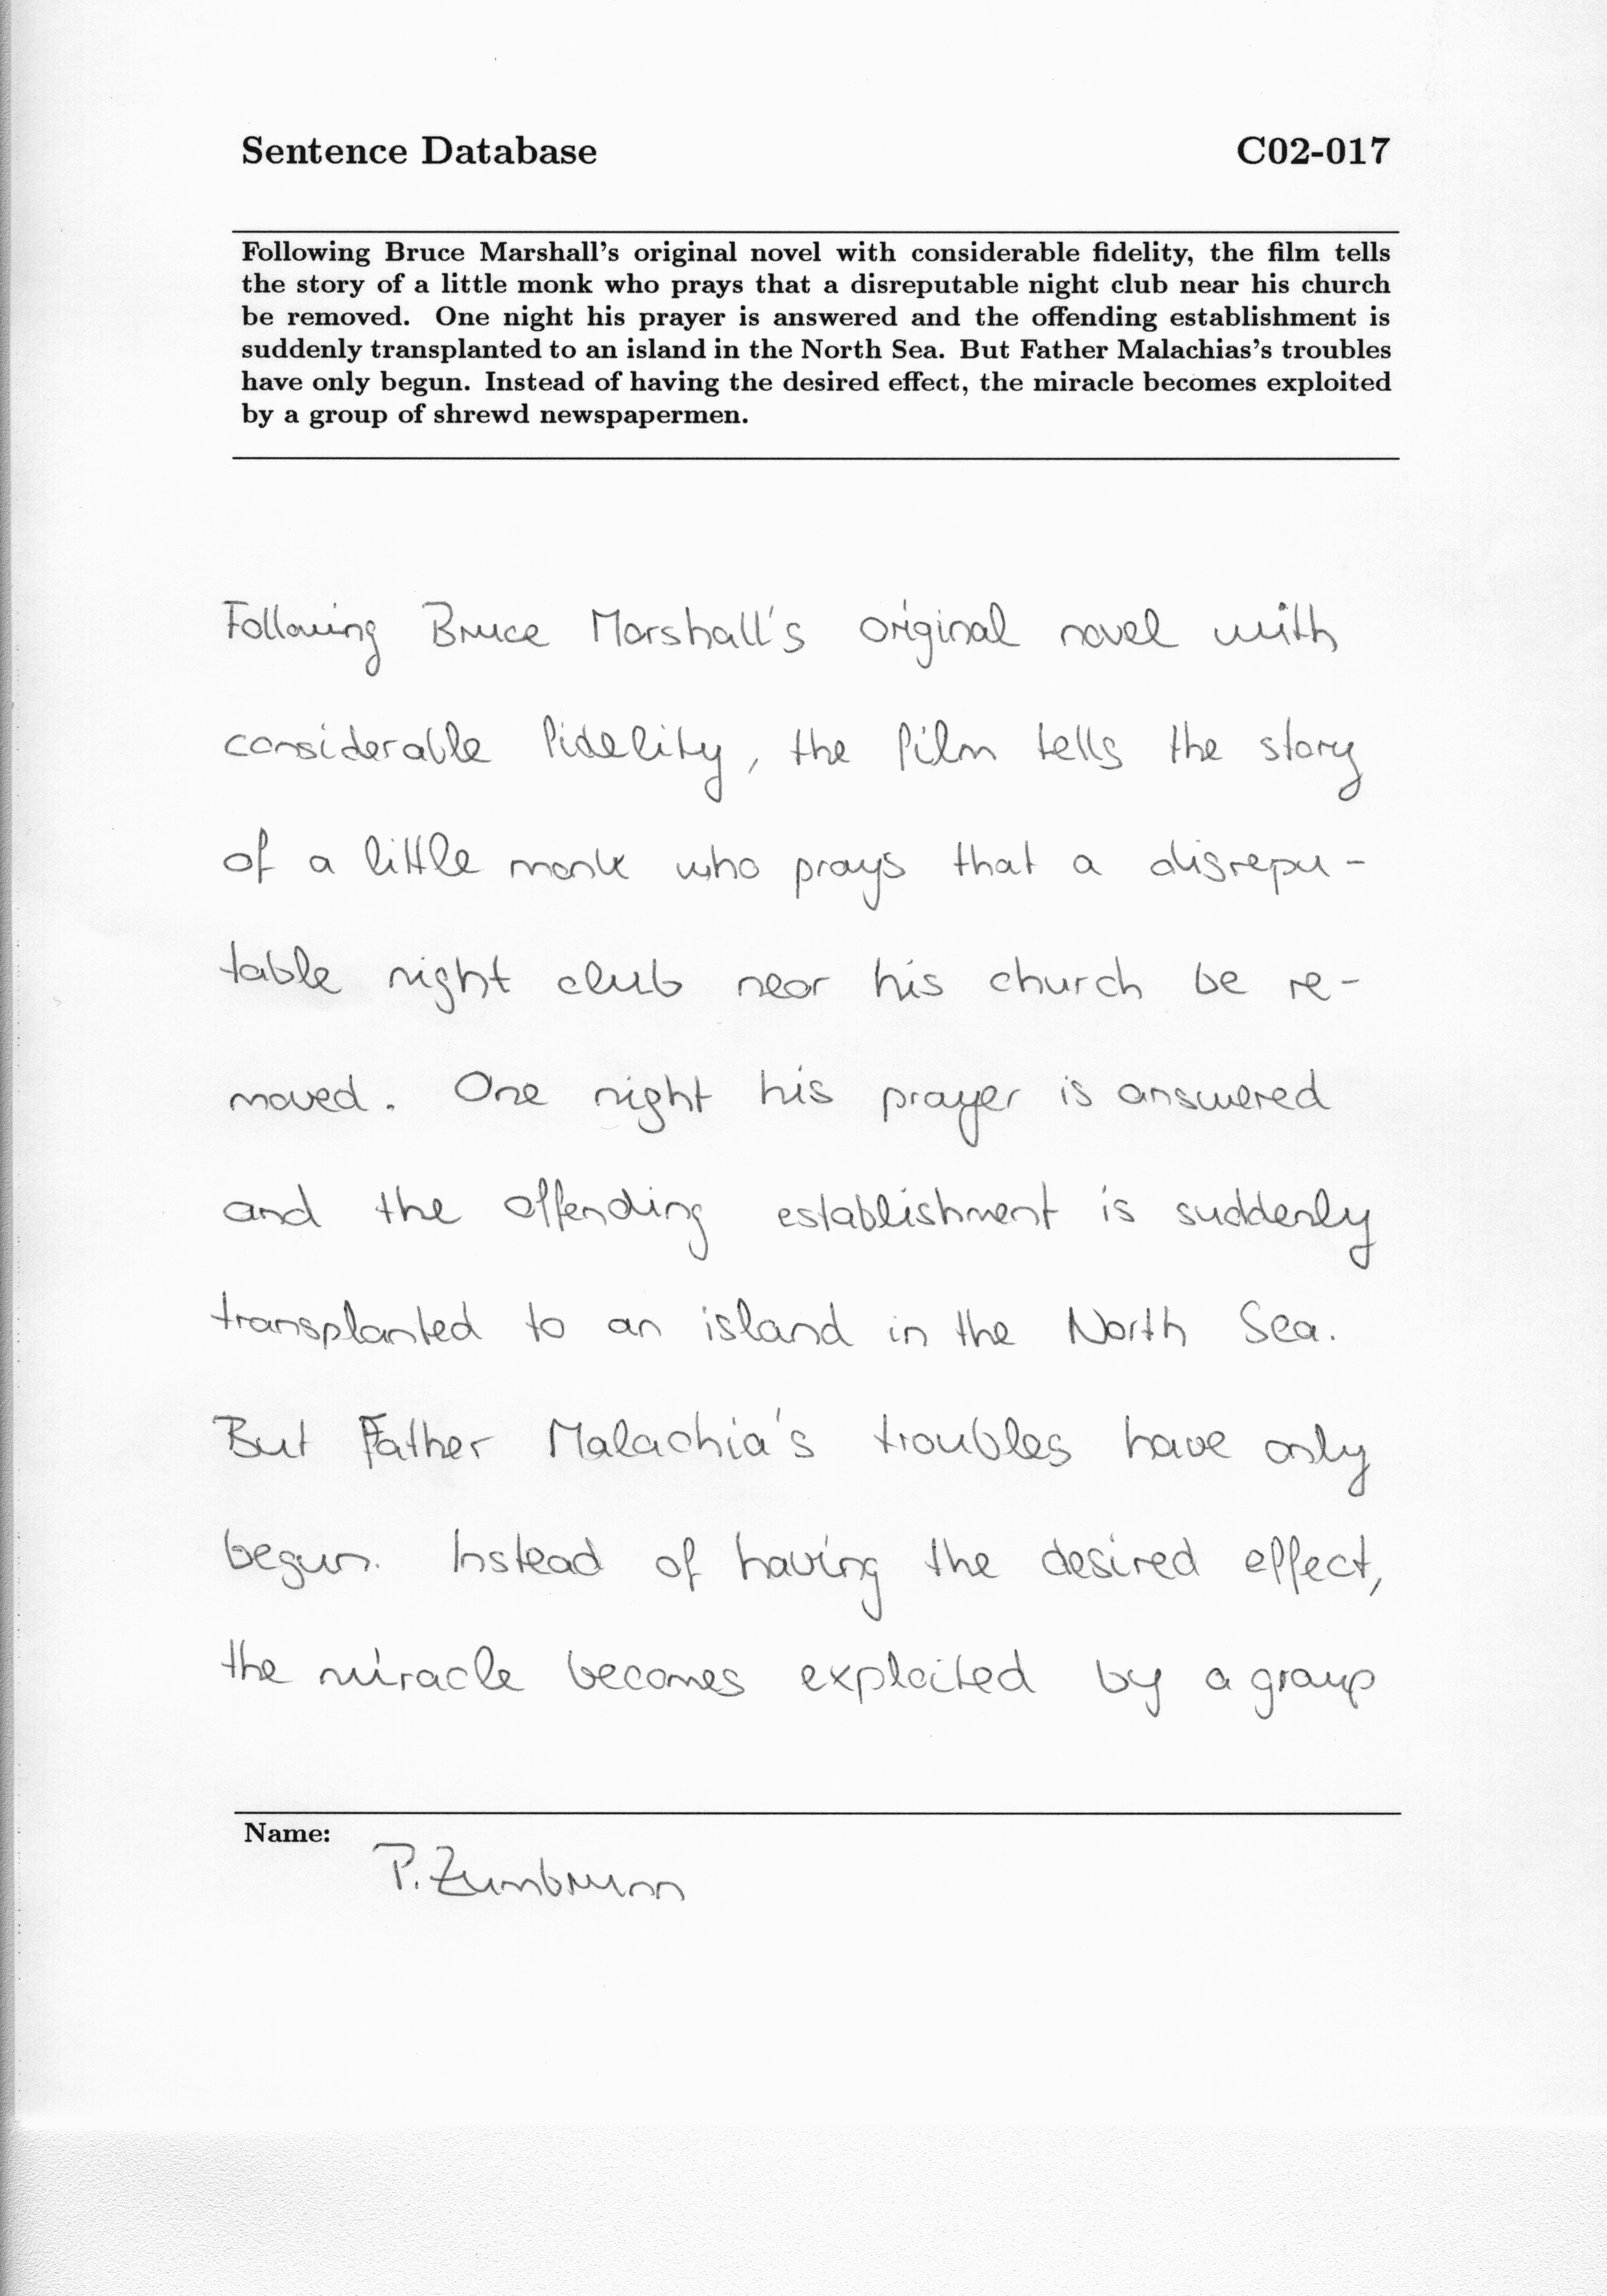 Sentence Database C02-017
Following Bruce Marshall's original novel with considerable fidelity, the film tells
the story of a little monk who prays that a disreputable night club near his church
be removed. One night his prayer is answered and the offending establishment is
suddenly transplanted to an island in the North Sea. But Father Malachias's troubles
have only begun. Instead of having the desired effect, the miracle becomes exploited
by a group of shrewd newspapermen.
Following Bruce Marshall's original novel with
considerable fidelity, the film tells the story
of a little monk who prays that a disrepu-
table night club near his church be re-
moved. One night his prayer is answered
and the offending establishment is suddenly
transplanted to an island in the North Sea.
But Father Malachia's troubles have only
begun. Instead of having the desired effect,
the miracle becomes exploited by a group
Name:
P. Zumbrunn